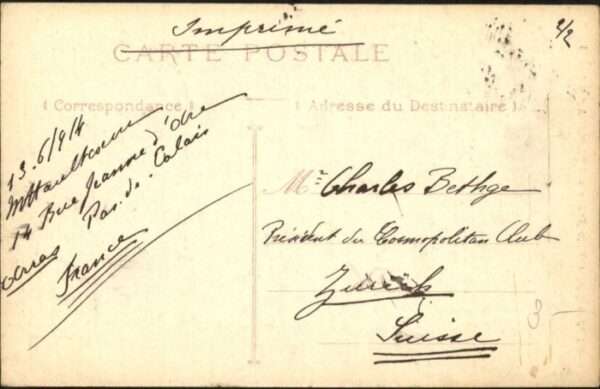 Imprimé
2/2
CARTE POSTALE
Correspondance
Adresse du Destinataire
13.6/914
14 Rue Jeanne d'Arc
Pas-de-Calais
Arras
France
Mr. Charles Bethge
Président du Cosmopolitan Club
Zurich
Suisse
3-